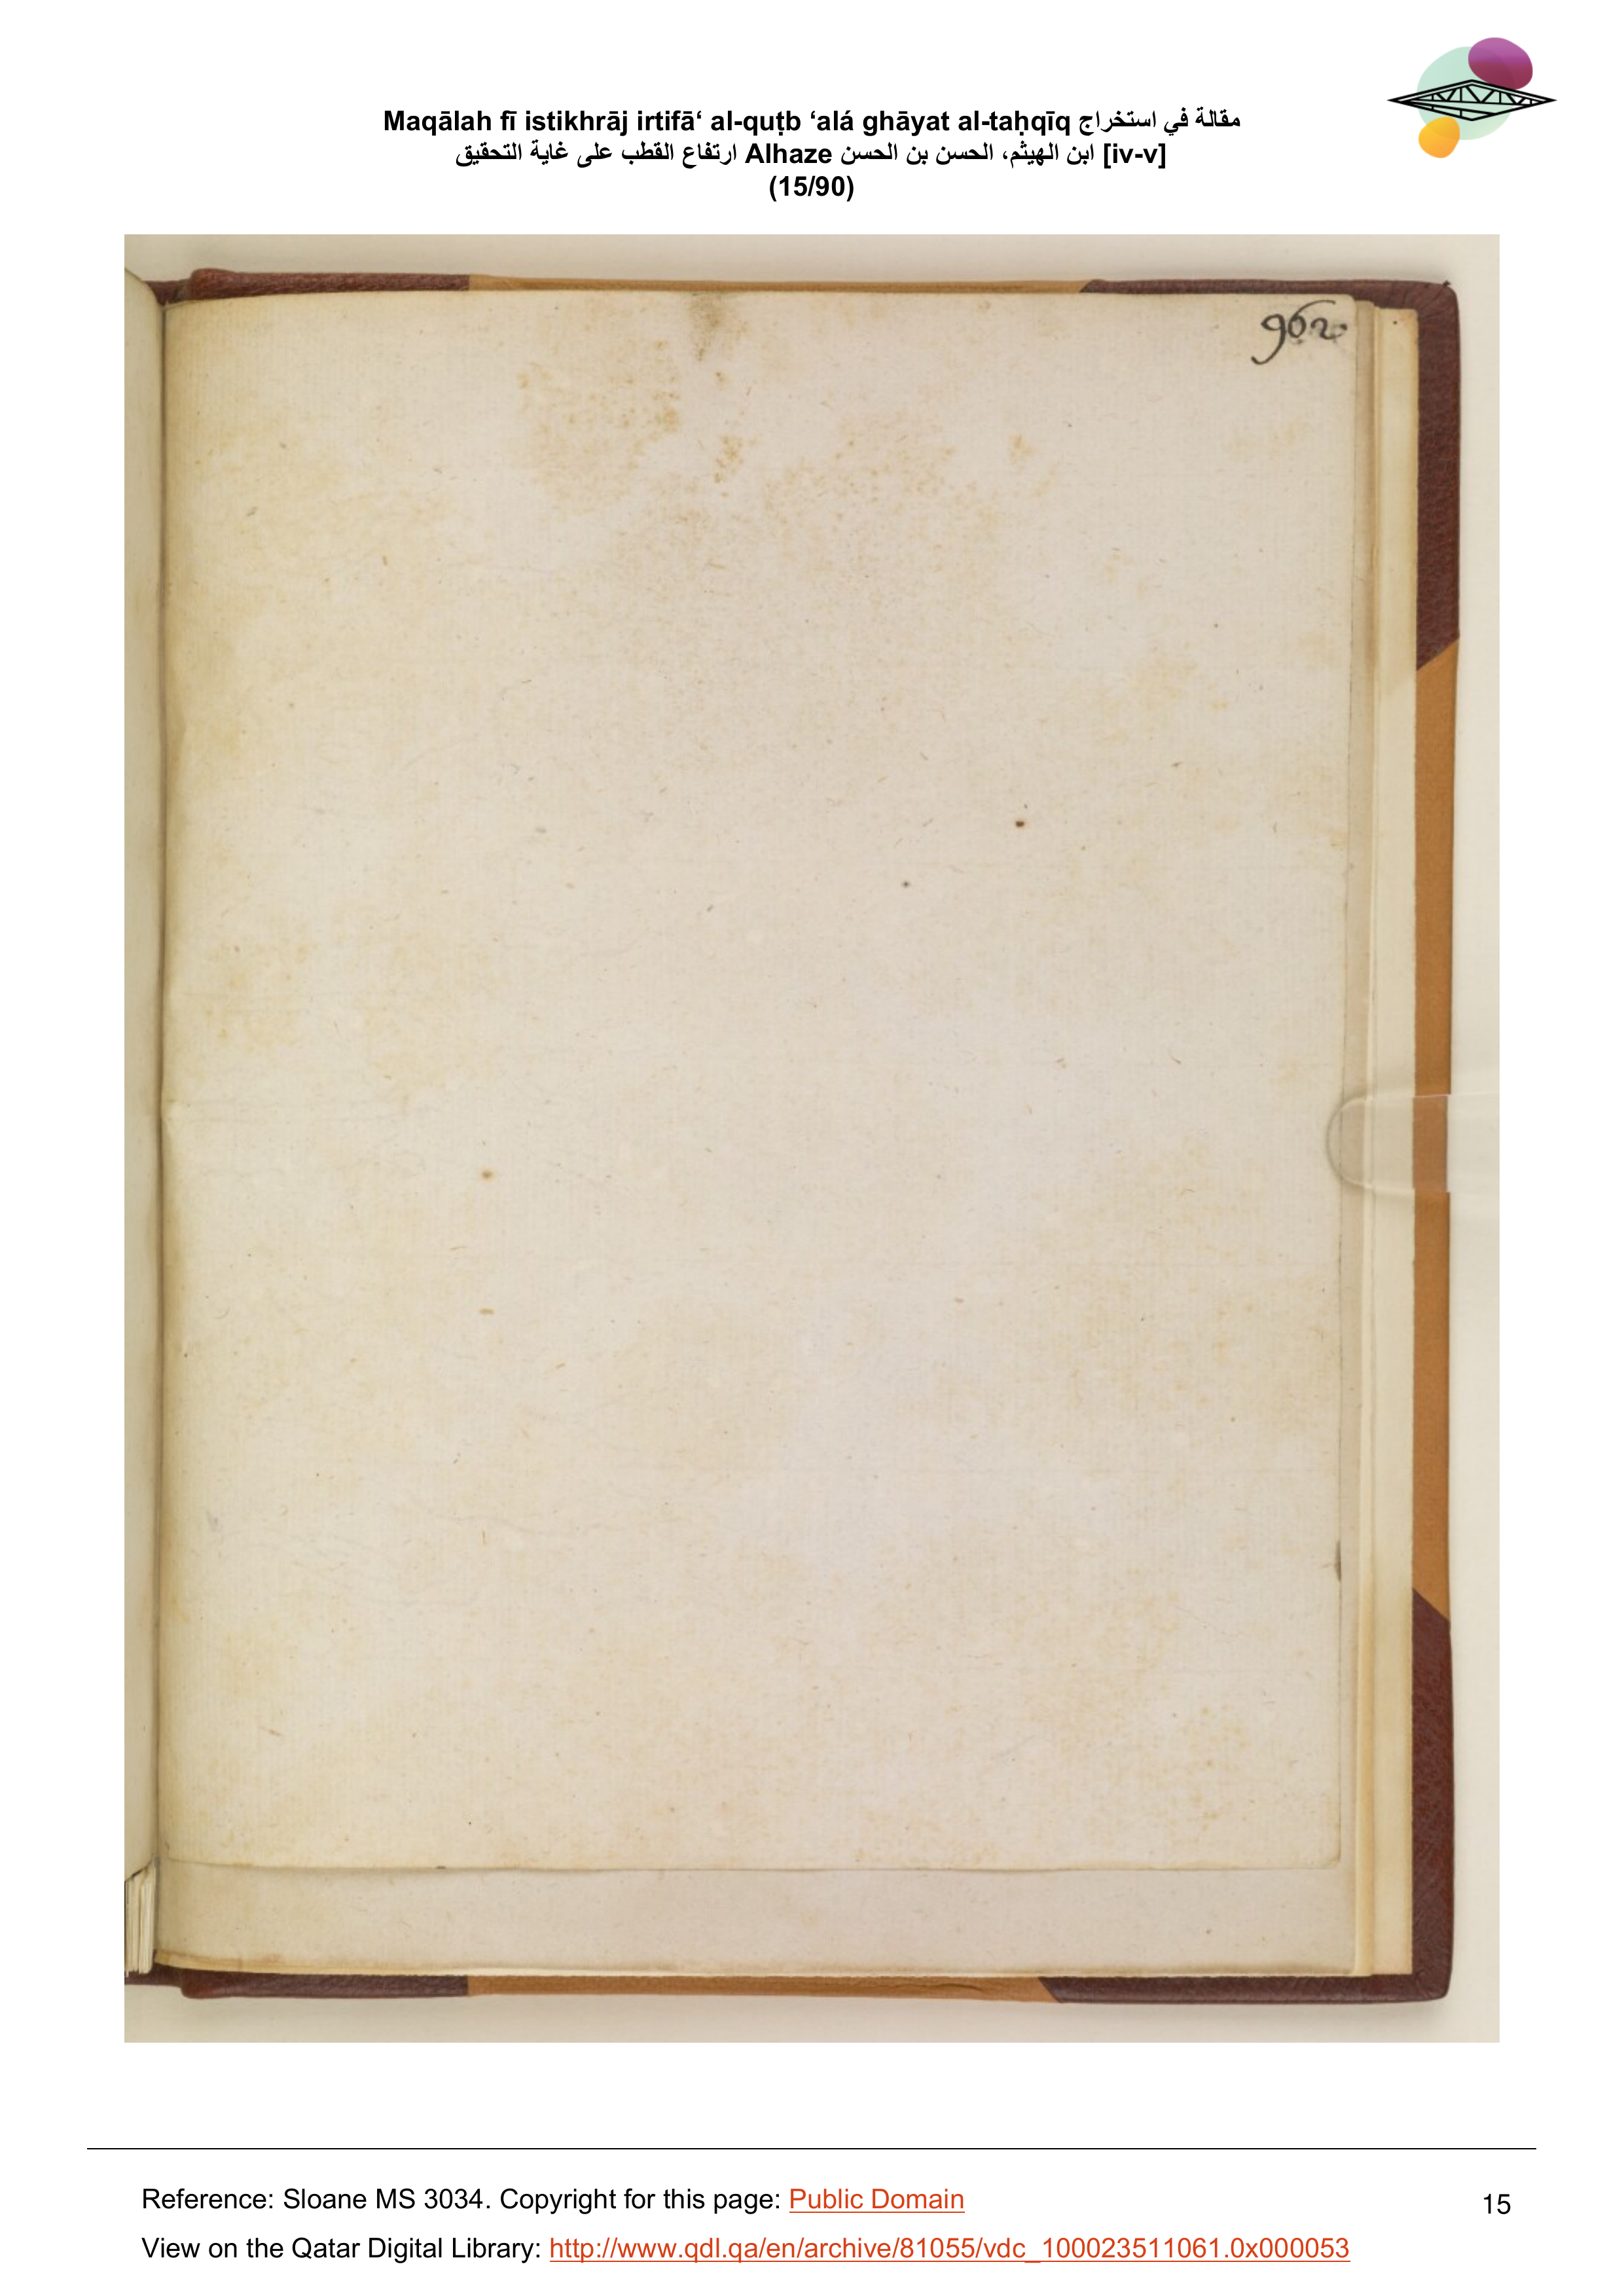 Maqālah fī istikhrāj irtifā‘ al-quṭb ‘alá ghāyat al-taḥqīq مقالة في استخراج
ارتفاع القطب على غاية التحقيق Alhaze ابن الهيثم، الحسن بن الحسن [iv-v]
(15/90)
962
Reference: Sloane MS 3034. Copyright for this page: Public Domain
15
View on the Qatar Digital Library: http://www.qdl.qa/en/archive/81055/vdc_100023511061.0x000053